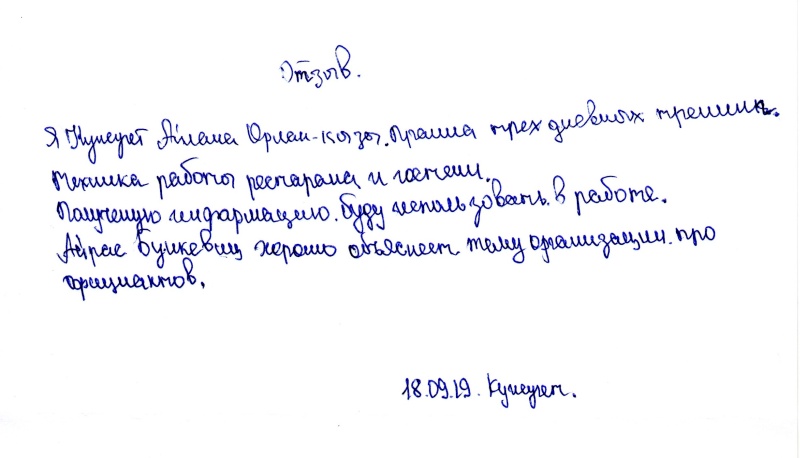 Отзыв.
Я Кунсулет Орлан-кызы. Прашла трех дневных тренинг.
техника работы ресторана и гостели.
Полученую информацию. буду использовать. в работе.
хорошо объяснеет. тему организации. про
официантов.
18.09.19.